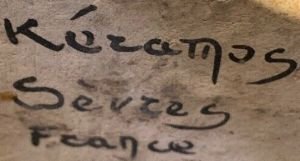 Kéramos
Sèvres
France